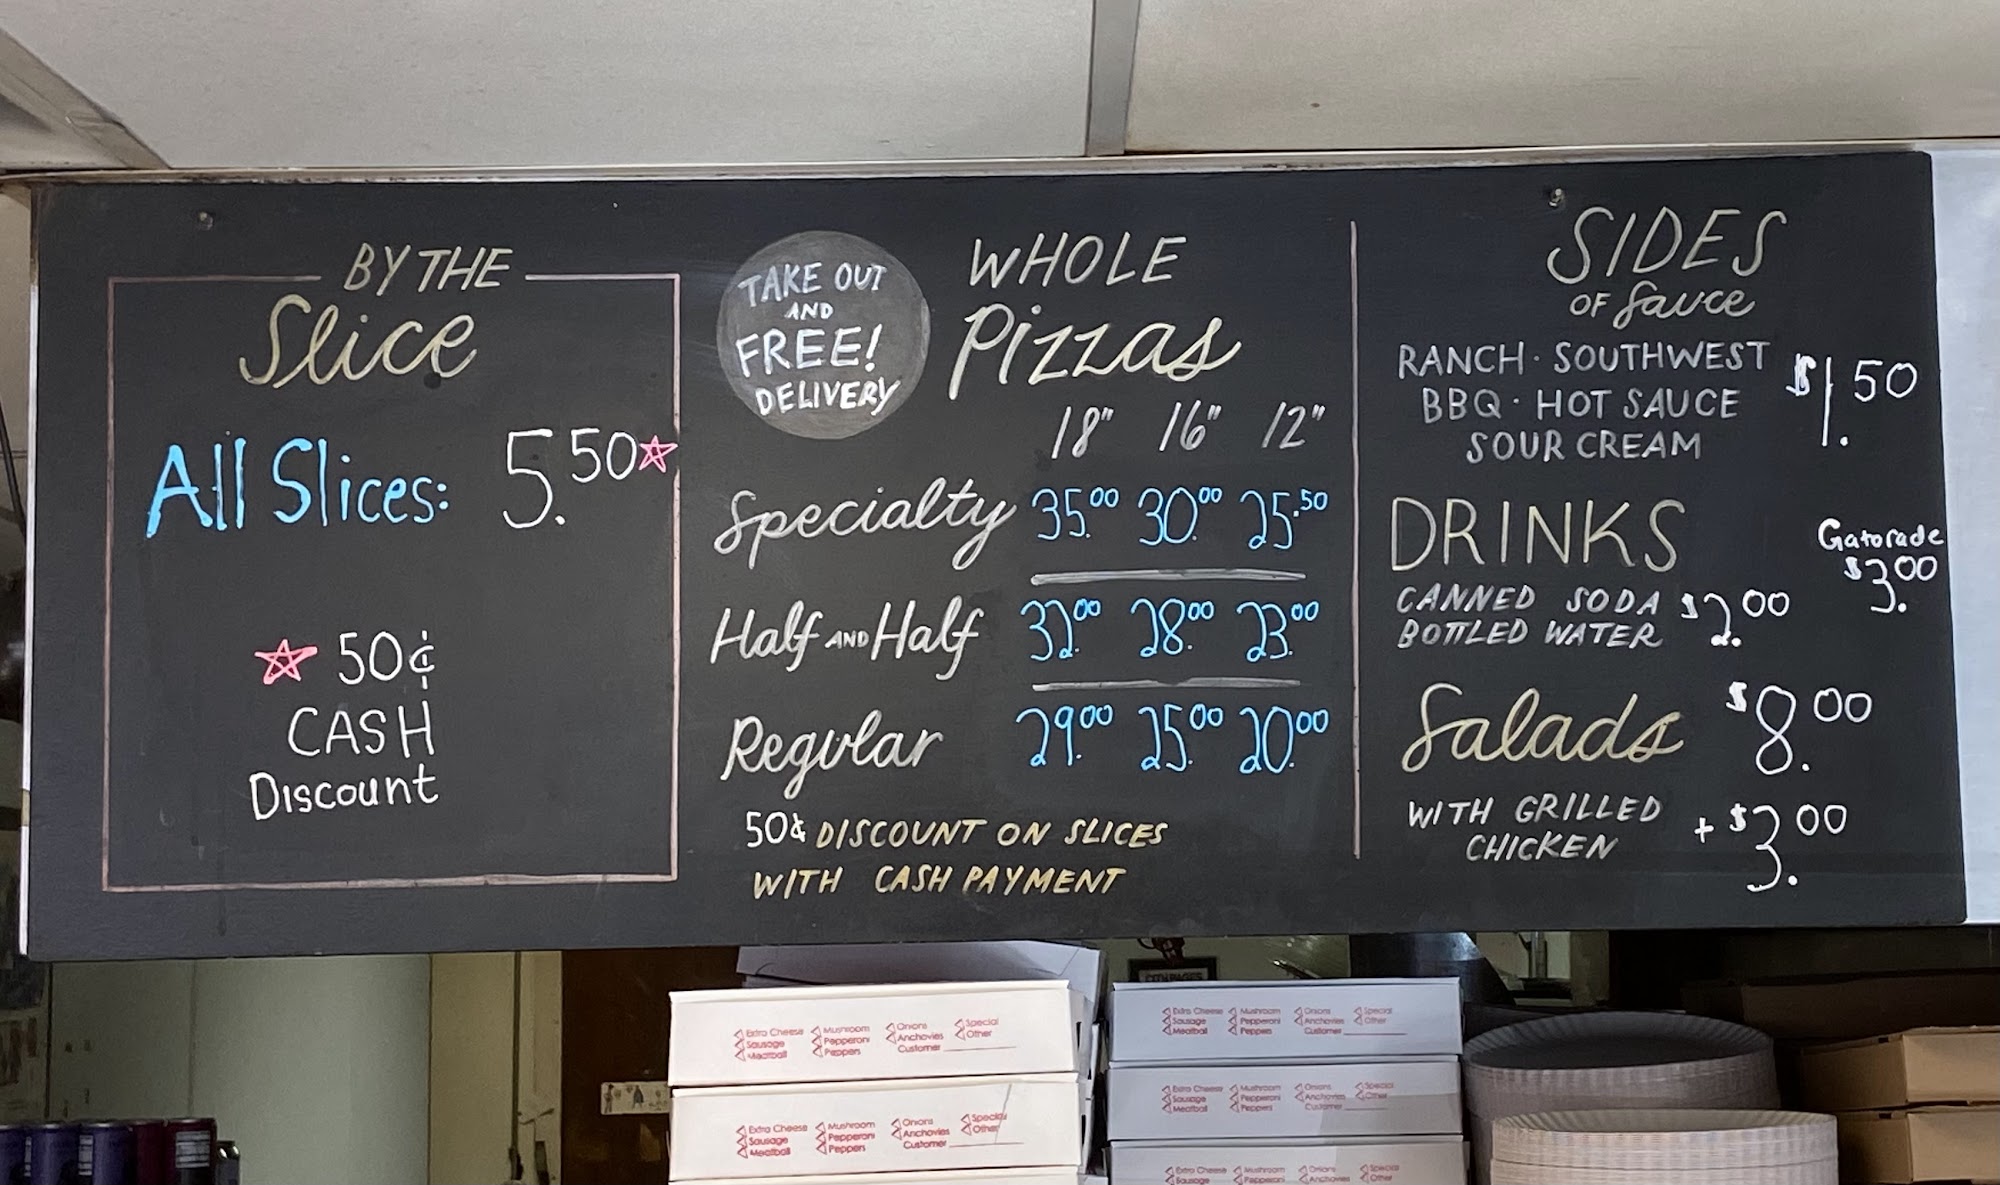 BY THE
Slice
All Slices: 5.50☆
☆ 50¢
CASH
Discount
TAKE OUT
AND
FREE!
DELIVERY
WHOLE
Pizzas
18" 16" 12"
Specialty 35.00 30.00 25.50
Half AND Half 32.00 28.00 23.00
Regular 29.00 25.00 20.00
50¢ DISCOUNT ON SLICES
WITH CASH PAYMENT
SIDES
OF Sauce
RANCH · SOUTHWEST
BBQ · HOT SAUCE
SOUR CREAM
$1.50
DRINKS
Gatorade
$3.00
CANNED SODA
BOTTLED WATER
$2.00
Salads $8.00
WITH GRILLED
CHICKEN
+ $3.00
Extra Cheese Mushroom Onions Special
Sausage Pepperoni Anchovies Other
Meatball Peppers Customer
Extra Cheese Mushroom Onions Special
Sausage Pepperoni Anchovies Other
Meatball Peppers Customer
Extra Cheese Mushroom Onions Special
Sausage Pepperoni Anchovies Other
Meatball Peppers Customer
Extra Cheese Mushroom Onions Special
Sausage Pepperoni Anchovies Other
Meatball Peppers Customer
Extra Cheese Mushroom Onions Special
Sausage Pepperoni Anchovies Other